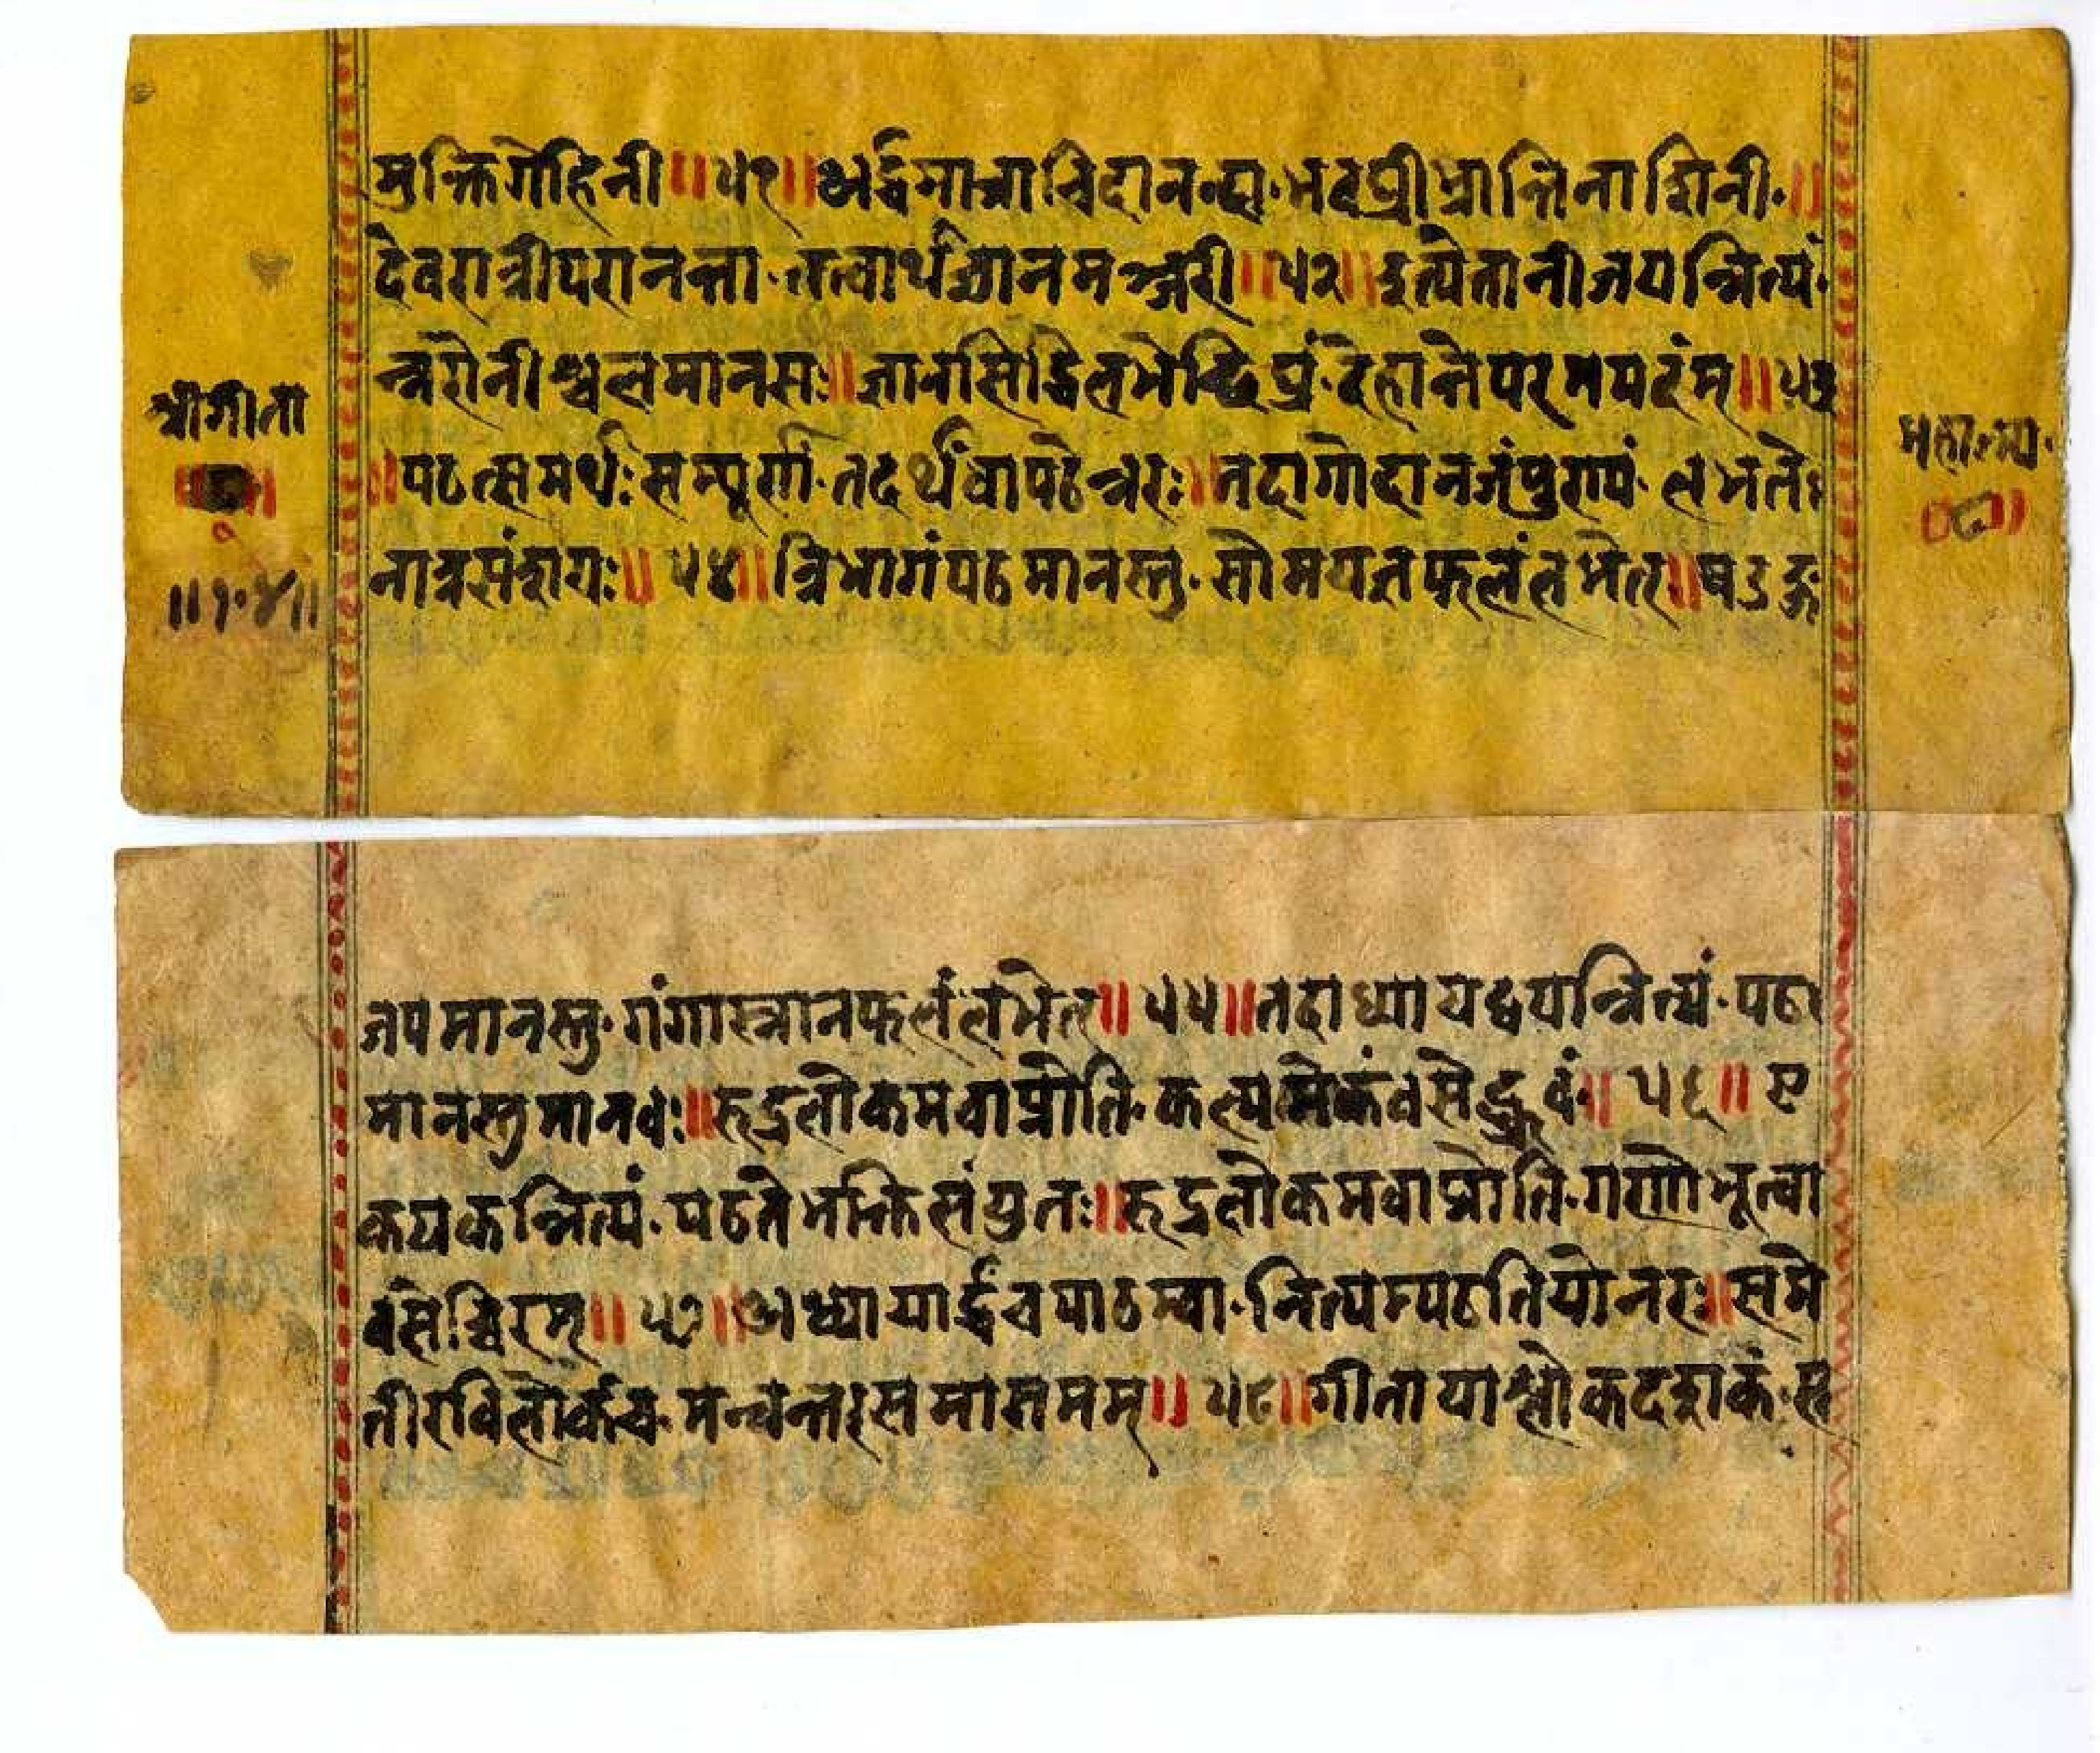 मुक्तिगेहिनी॥५१॥अर्द्धमात्राचिदानन्दा·भवघ्नीभ्रान्तिनाशिनी·॥
देवरात्रीपरानन्ता·तत्वार्थज्ञानमञ्जरी॥५२॥इत्येतानीजयन्नित्यं·
न्नरोनीश्चलमानसः॥ज्ञानसिद्धिलभेच्छिप्रं·देहान्तेपरमपदंम्॥५३
॥पठत्समर्थःसम्पूर्णा·तदर्थंवापठेन्नरः॥तदागोदानजंपुण्यं·लभते
नात्रसंशयः॥५४॥त्रिभागंपठमानस्तु·सोमयतफलंलभेत्॥षडङ्ग
श्रीगीता
॥१०४॥
महात्म्य·
जपमानस्तु·गंगास्नानफलंलभेत्॥५५॥तदाध्यायद्वयन्नित्यं·पठ
मानस्तुमानवः॥रुद्रलोकमवाप्नोति·कल्पमेकंवसेद्ध्रुवं॥५६॥ए
कयकन्नित्यं·पठतेभक्तिसंयुतः॥रुद्रलोकमवाप्नोति·गणोभूत्वा
वसेच्चिरम्॥५७॥अध्यायार्द्धंचपाठम्वा·नित्यम्पठतियोनरः॥समे
तीरविलोकंच·मन्वन्तरसमासमम्॥५८॥गीतायाश्लोकदशकं·स